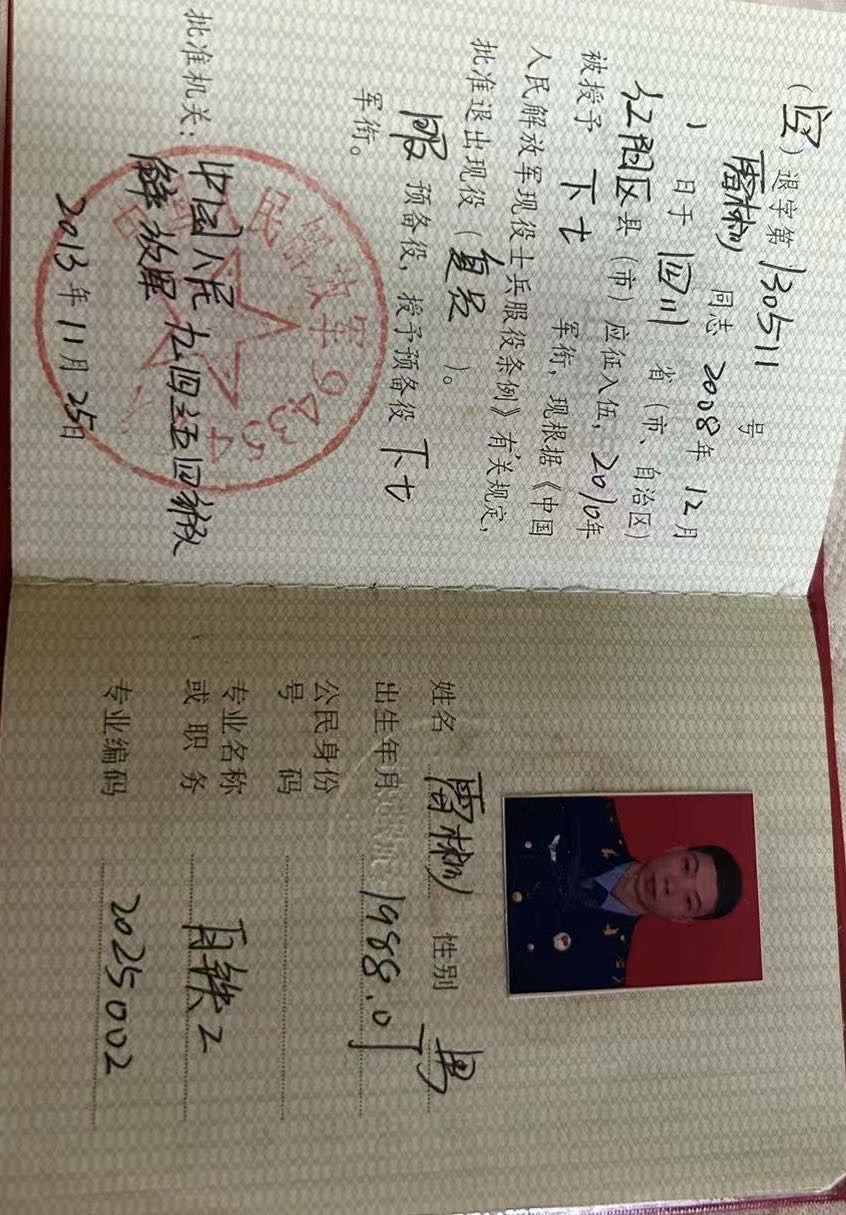 （空）退字第130511号
雷彬同志2008年12月
1日于四川省（市、自治区）
江阳区县（市）应征入伍，2010年
被授予下士军衔，现根据《中国
人民解放军现役士兵服役条例》有关规定，
批准退出现役（复员）。
服预备役，授予预备役下士
军衔。
批准机关：
中国人民
解放军九四三五四部队
2013年11月25日
民解放军94354
姓名 雷彬 性别 男
出生年月 1988.0
公民身份
号码
专业名称
或职务
专业编码 2025002